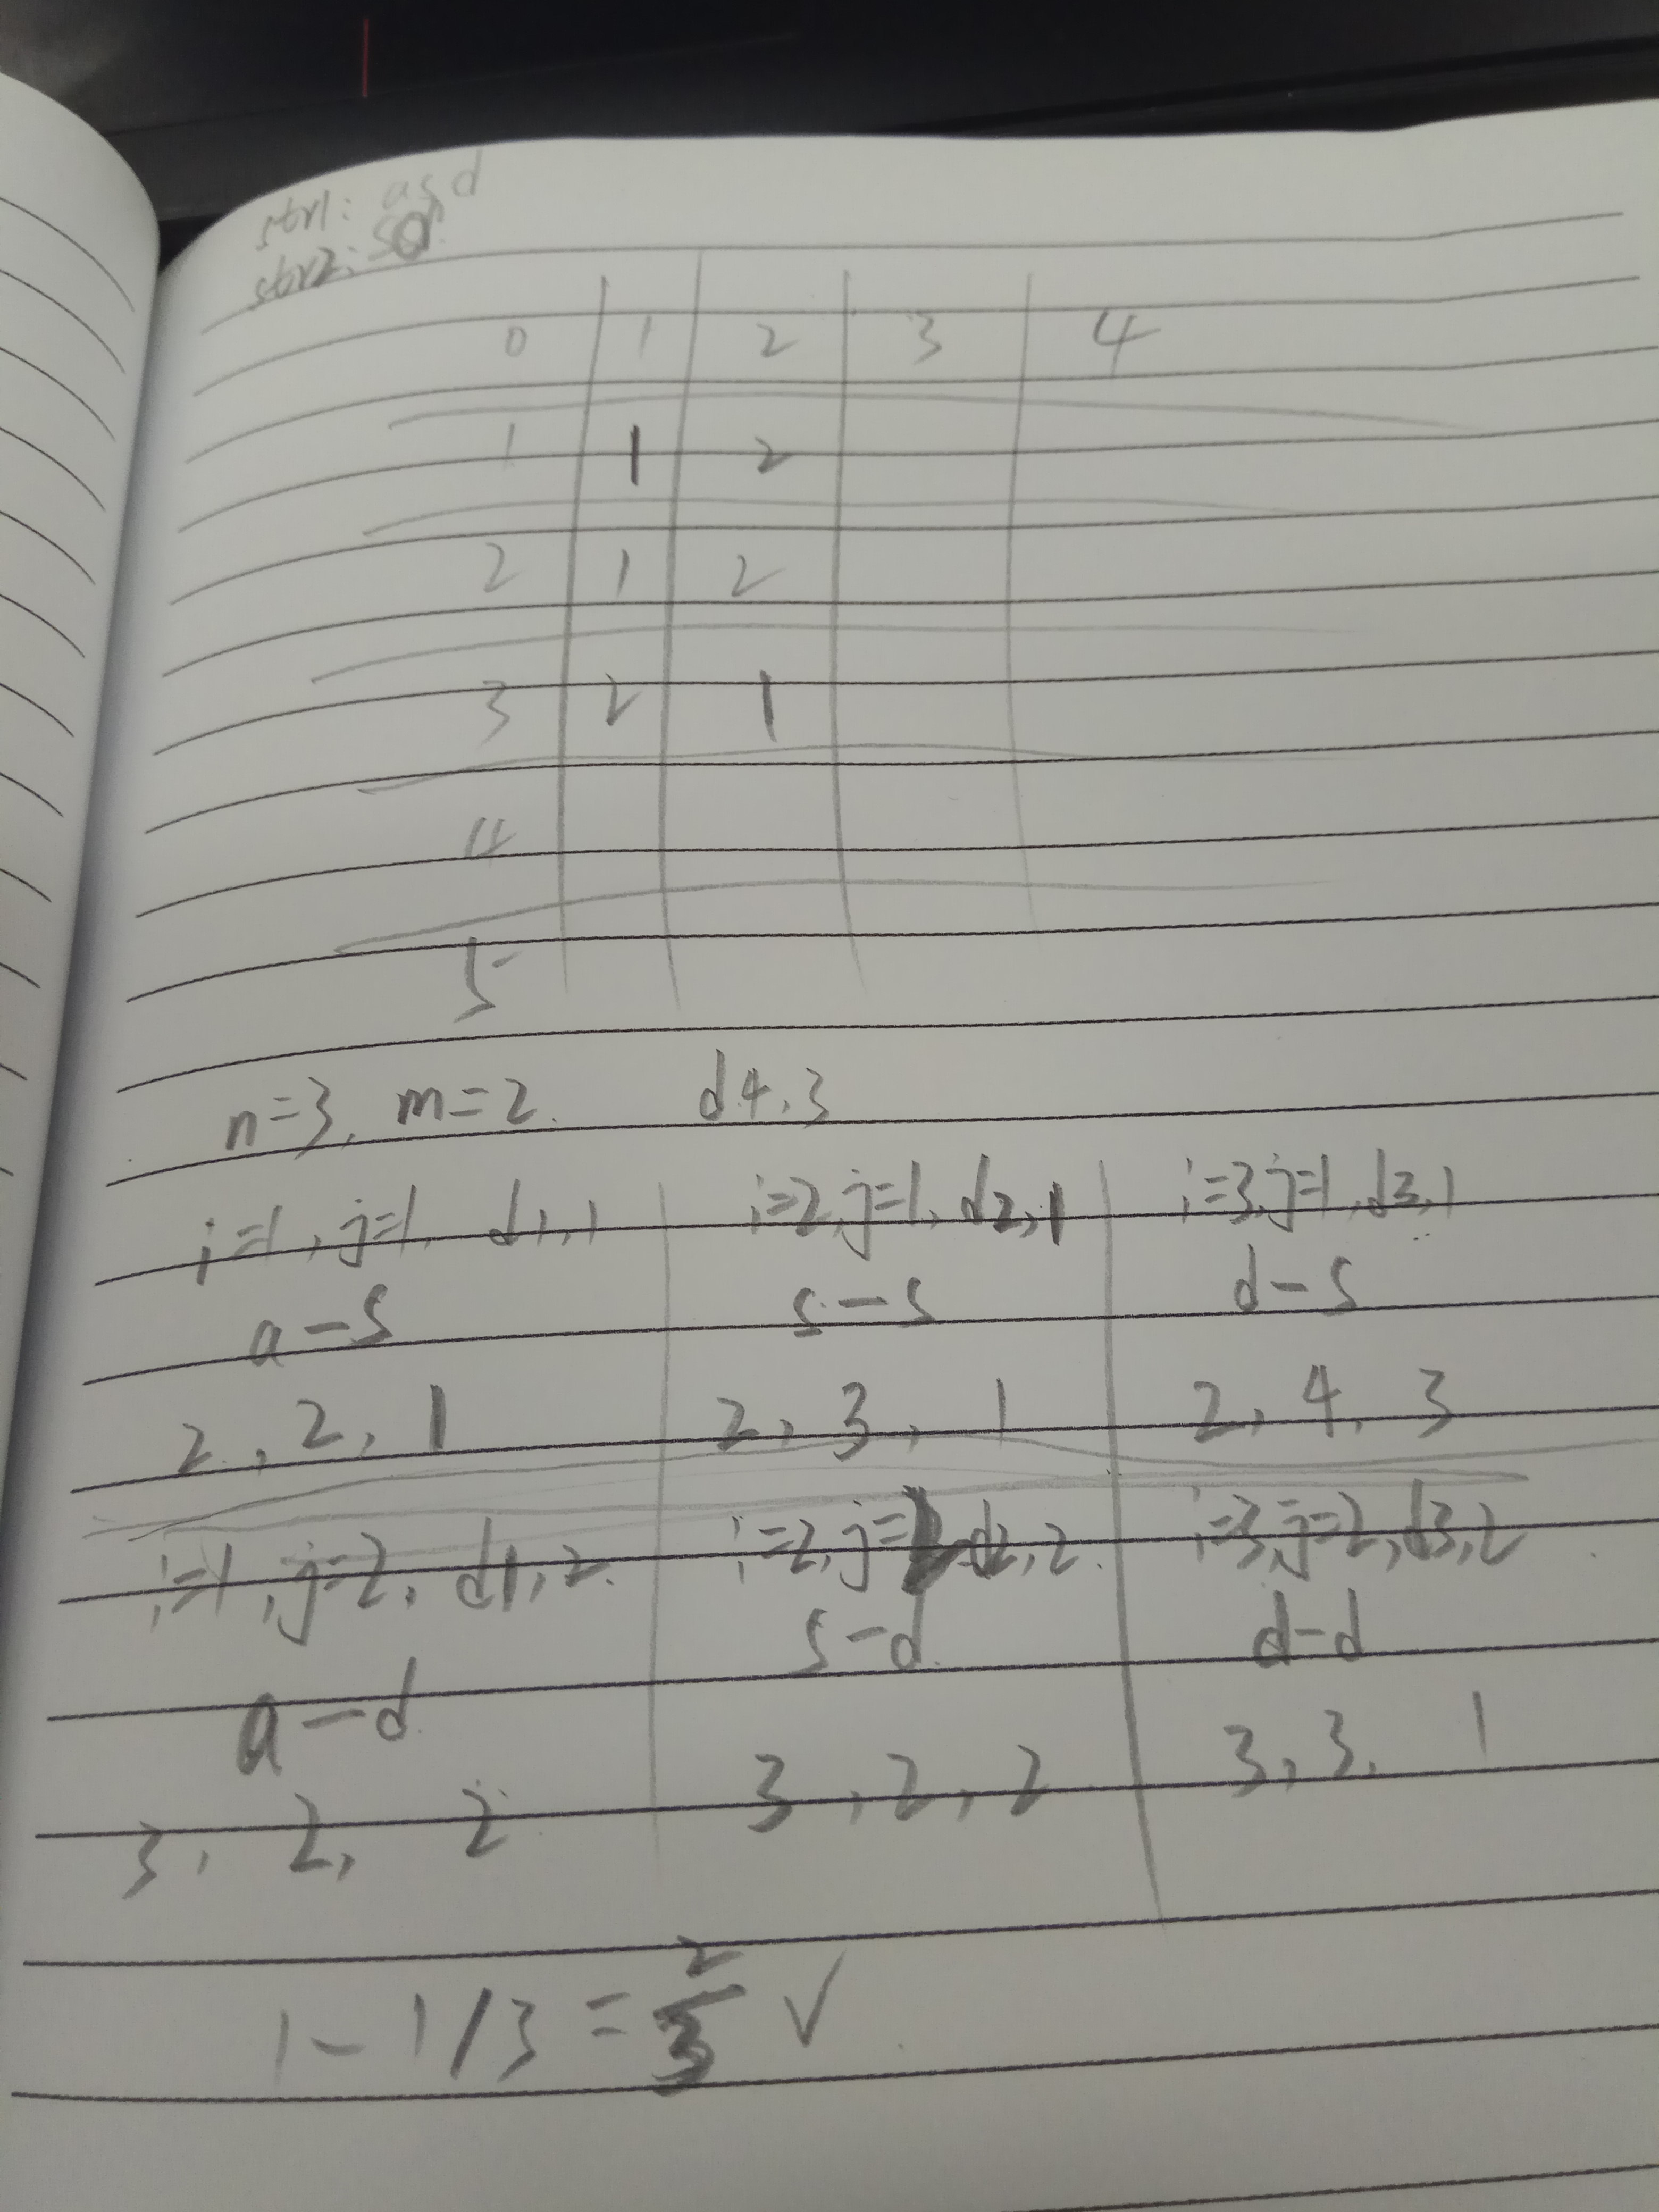 str1: asd
str2: sd
0 1 2 3 4
1 1 2
2 1 2
3 2 1
4
5
n=3, m=2. d4,3
i=1, j=1, d1,1 i=2, j=1, d2,1 i=3, j=1, d3,1
a-s s-s d-s
2, 2, 1 2, 3, 1 2, 4, 3
i=1, j=2, d1,2. i=2, j=2 d2,2. i=3, j=2, d3,2
a-d s-d d-d
3, 2, 2 3, 2, 2 3, 3, 1
1-1/3 = 2/3 √